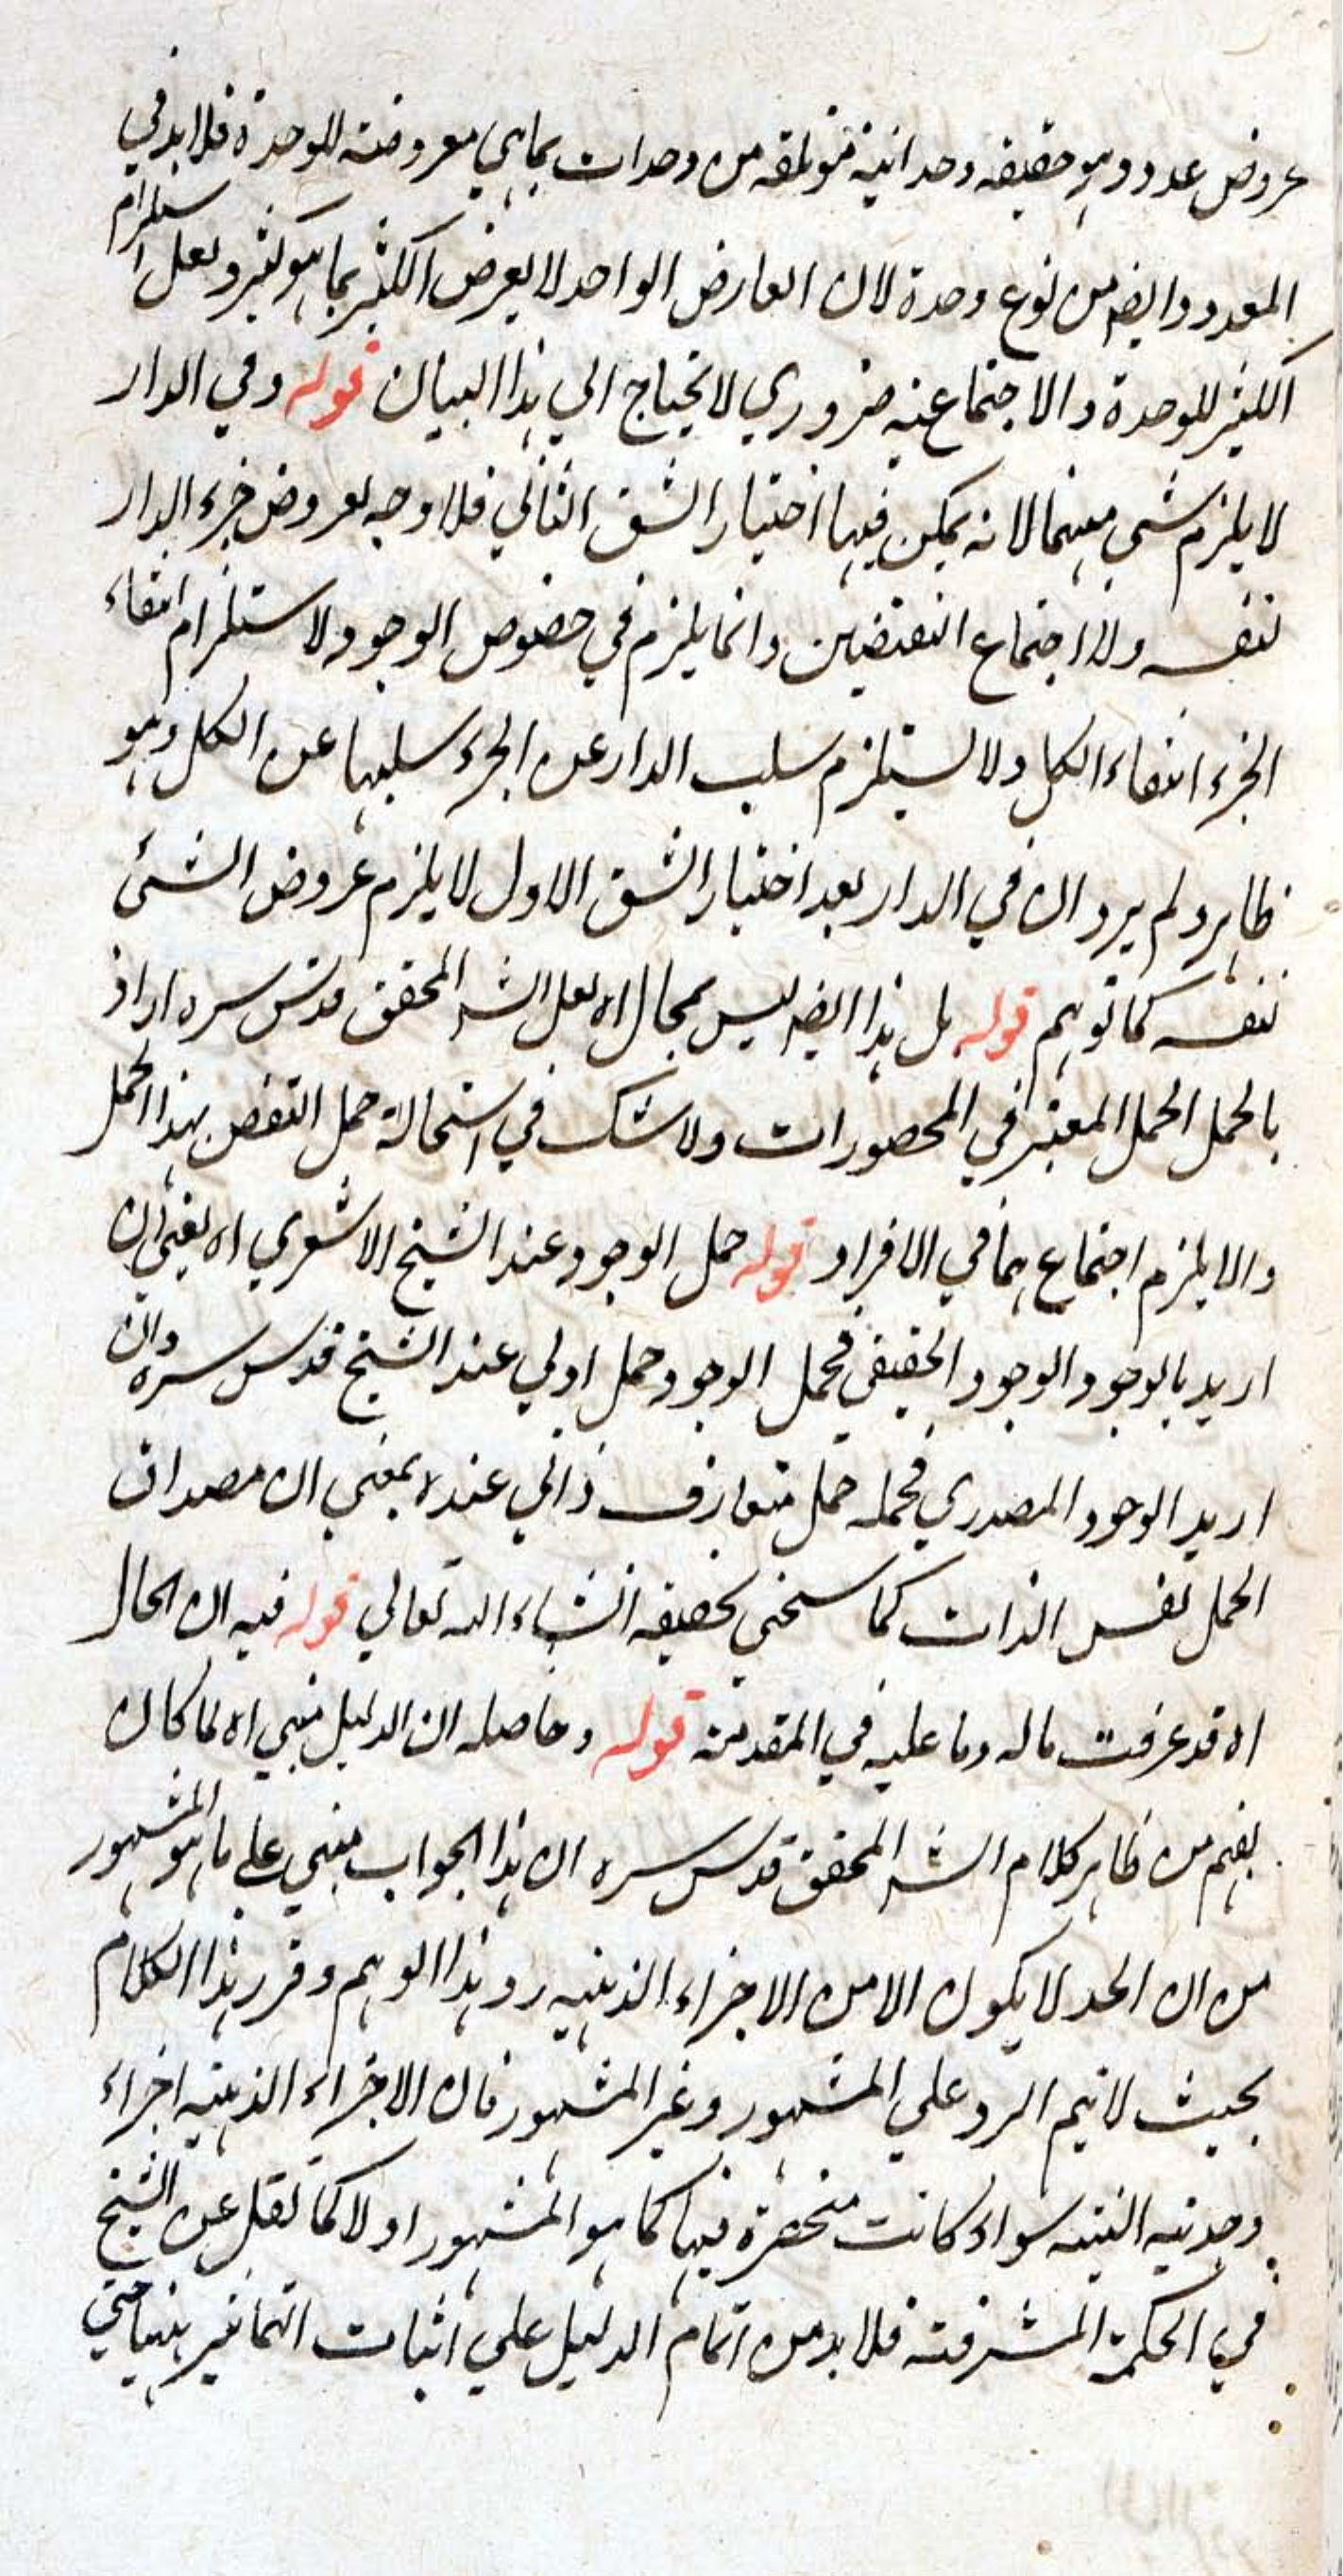 عروض عدد وهو حقيقه وحدانية مؤتلفه من وحدات بما هي معروضة للوحدة فلا بد في
المعدود وايضا من نوع وحدة لان العارض الواحد لا يعرض الكثير بما هو كثير ولعل استلزام
الكثير للوحدة والاجتماعيه ضروري لا يحتاج الي هذا البيان قوله وفي الدار
لا يلزم شي منهما لانه يمكن فيها اختيار الشق الثاني فلا وجه لعروض جزء الدار
لنفسه ولا اجتماع النقيضين وانما يلزم في خصوص الوجود لاستلزام انتفاء
الجزء انتفاء الكل ولا يستلزم سلب الدار عن الجزء سلبها عن الكل وهو
ظاهر ولم يرد ان في الدار بعد اختيار الشق الاول لا يلزم عروض الشئ
لنفسه كما توهم قوله بل هذا ايضا ليس بمحال اه لعل الشـ المحقق قدس سره اراد
بالحمل الحمل المعتبر في المحصورات ولا شك في استحالة حمل النقيض بهذا الحمل
والا يلزم اجتماعهما في الافراد قوله حمل الوجود عند الشيخ الاشعري اه يعني ان
اريد بالوجود الوجود الحقيقي فحمل الوجود حمل اولي عند الشيخ قدس سره وان
اريد الوجود المصدري فحمله حمل متعارف ذاتي عنده بمعني ان مصداق
الحمل نفس الذات كما سيجئ تحقيقه انشاء الله تعالي قوله فيه ان الحال
اه قد عرفت ما له وما عليه في المقدمة قوله وحاصله ان الدليل مبني اه لما كان
يفهم من ظاهر كلام الشـ المحقق قدس سره ان هذا الجواب مبني علي ما هو المشهور
من ان الحد لا يكون الا من الاجزاء الذهنيه رد هذا الوهم وقرر هذا الكلام
بحيث لا يتم الرد علي المشهور وغير المشهور فان الاجزاء الذهنيه اجزاء
حديه البته سواء كانت منحصرة فيها كما هو المشهور او لا كما نقل عن الشيخ
في الحكمة المشرقية فلا بد من اتمام الدليل علي اثبات التمايز بينها حتي